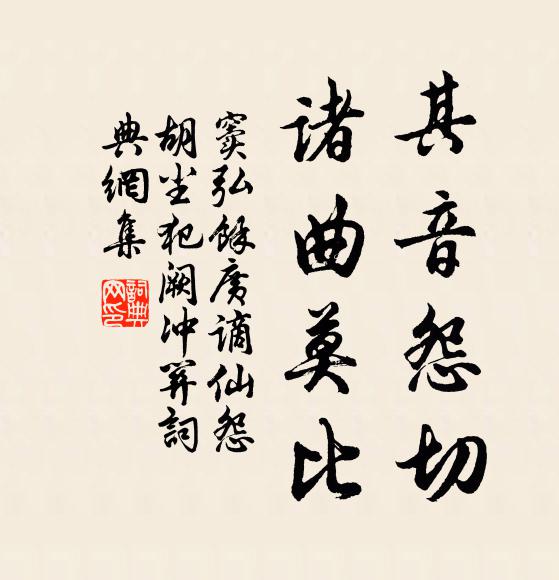 其音怨切
諸曲莫比
窦弘餘廣謫仙怨
胡尘犯阙冲关詞
典網集
詞典
网印